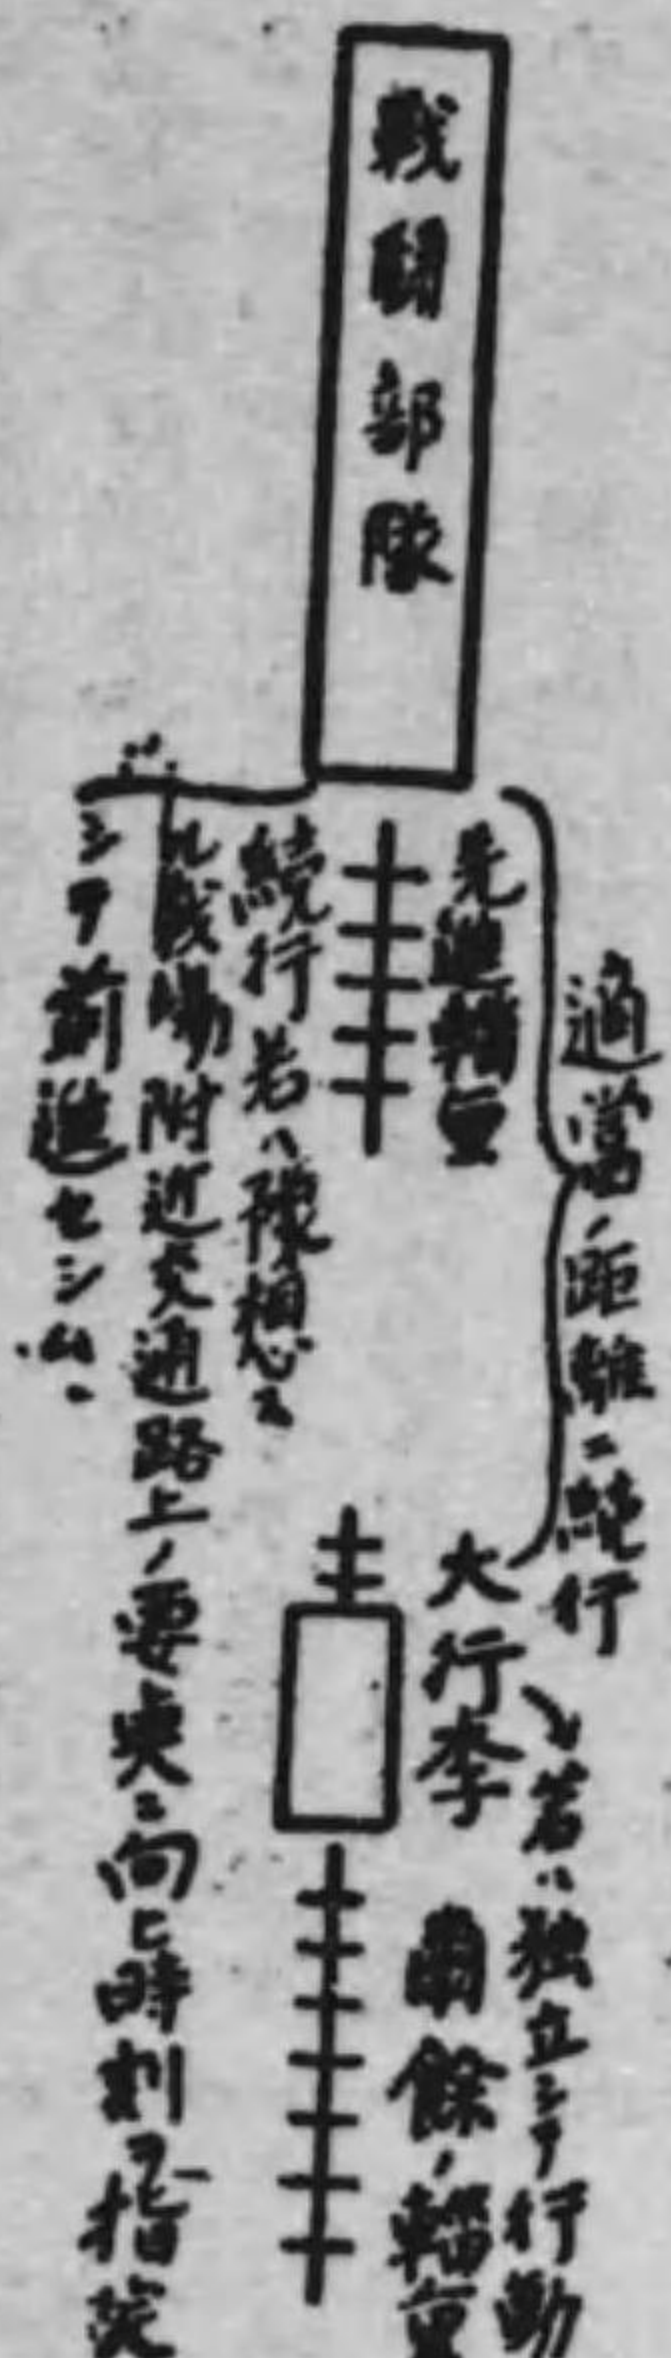 戦闘部隊
適当ノ距離ニ続行
若ハ独立シテ行動
先進輜重
大行李
爾餘ノ輜重
続行若ハ豫想ス
ル戦場附近交通路上ノ要点ニ向ヒ時刻ヲ指定
シテ前進セシム